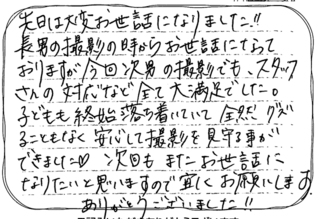 先日は大変お世話になりました!!
長男の撮影の時からお世話になって
おりますが今回次男の撮影でも、スタッフ
さんの対応など全て大満足でした。
子どもも終始落ち着いていて全然グズ
ることもなく安心して撮影を見守る事が
できました♡ 次回もまたお世話に
なりたいと思いますので宜しくお願いします。
ありがとうございました!!